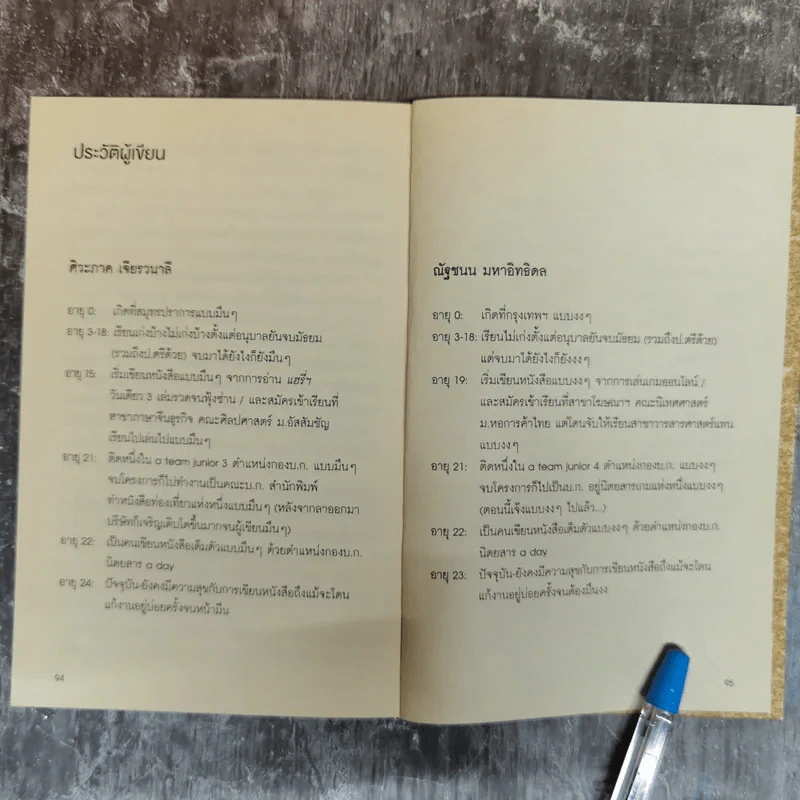 ประวัติผู้เขียน
ศิวะภาค เจียรวนาลี
อายุ 0: เกิดที่สมุทรปราการแบบมึนๆ
อายุ 3-18: เรียนเก่งบ้างไม่เก่งบ้างตั้งแต่อนุบาลยันจบมัธยม
(รวมถึงป.ตรีด้วย) จบมาได้ยังไงก็ยังมึนๆ
อายุ 15: เริ่มเขียนหนังสือแบบมึนๆ จากการอ่าน แฮรี่ฯ
วันเดียว 3 เล่มรวดจนฟุ้งซ่าน / และสมัครเข้าเรียนที่
สาขาภาษาจีนธุรกิจ คณะศิลปศาสตร์ ม.อัสสัมชัญ
เรียนไปเล่นไปแบบมึนๆ
อายุ 21: ติดหนึ่งใน a team junior 3 ตำแหน่งกองบ.ก. แบบมึนๆ
จบโครงการก็ไปทำงานเป็นคณะบ.ก. สำนักพิมพ์
ทำหนังสือท่องเที่ยวแห่งหนึ่งแบบมึนๆ (หลังจากลาออกมา
บริษัทก็เจริญเติบโตขึ้นมากจนผู้เขียนมึนๆ)
อายุ 22: เป็นคนเขียนหนังสือเต็มตัวแบบมึนๆ ด้วยตำแหน่งกองบ.ก.
นิตยสาร a day
อายุ 24: ปัจจุบัน-ยังคงมีความสุขกับการเขียนหนังสือถึงแม้จะโดน
แก้งานอยู่บ่อยครั้งจนหน้ามึน
94
ณัฐชนน มหาอิทธิดล
อายุ 0: เกิดที่กรุงเทพฯ แบบงงๆ
อายุ 3-18: เรียนไม่เก่งตั้งแต่อนุบาลยันจบมัธยม (รวมถึงป.ตรีด้วย)
แต่จบมาได้ยังไงก็ยังงงๆ
อายุ 19: เริ่มเขียนหนังสือแบบงงๆ จากการเล่นเกมออนไลน์ /
และสมัครเข้าเรียนที่สาขาโฆษณาฯ คณะนิเทศศาสตร์
ม.หอการค้าไทย แต่โดนจับให้เรียนสาขาวารสารศาสตร์แทน
แบบงงๆ
อายุ 21: ติดหนึ่งใน a team junior 4 ตำแหน่งกองบ.ก. แบบงงๆ
จบโครงการก็ไปเป็นบ.ก. อยู่นิตยสารเกมแห่งหนึ่งแบบงงๆ
(ตอนนี้เจ๊งแบบงงๆ ไปแล้ว...)
อายุ 22: เป็นคนเขียนหนังสือเต็มตัวแบบงงๆ ด้วยตำแหน่งกองบ.ก.
นิตยสาร a day
อายุ 23: ปัจจุบัน-ยังคงมีความสุขกับการเขียนหนังสือถึงแม้จะโดน
แก้งานอยู่บ่อยครั้งจนต้องมึนงง
95